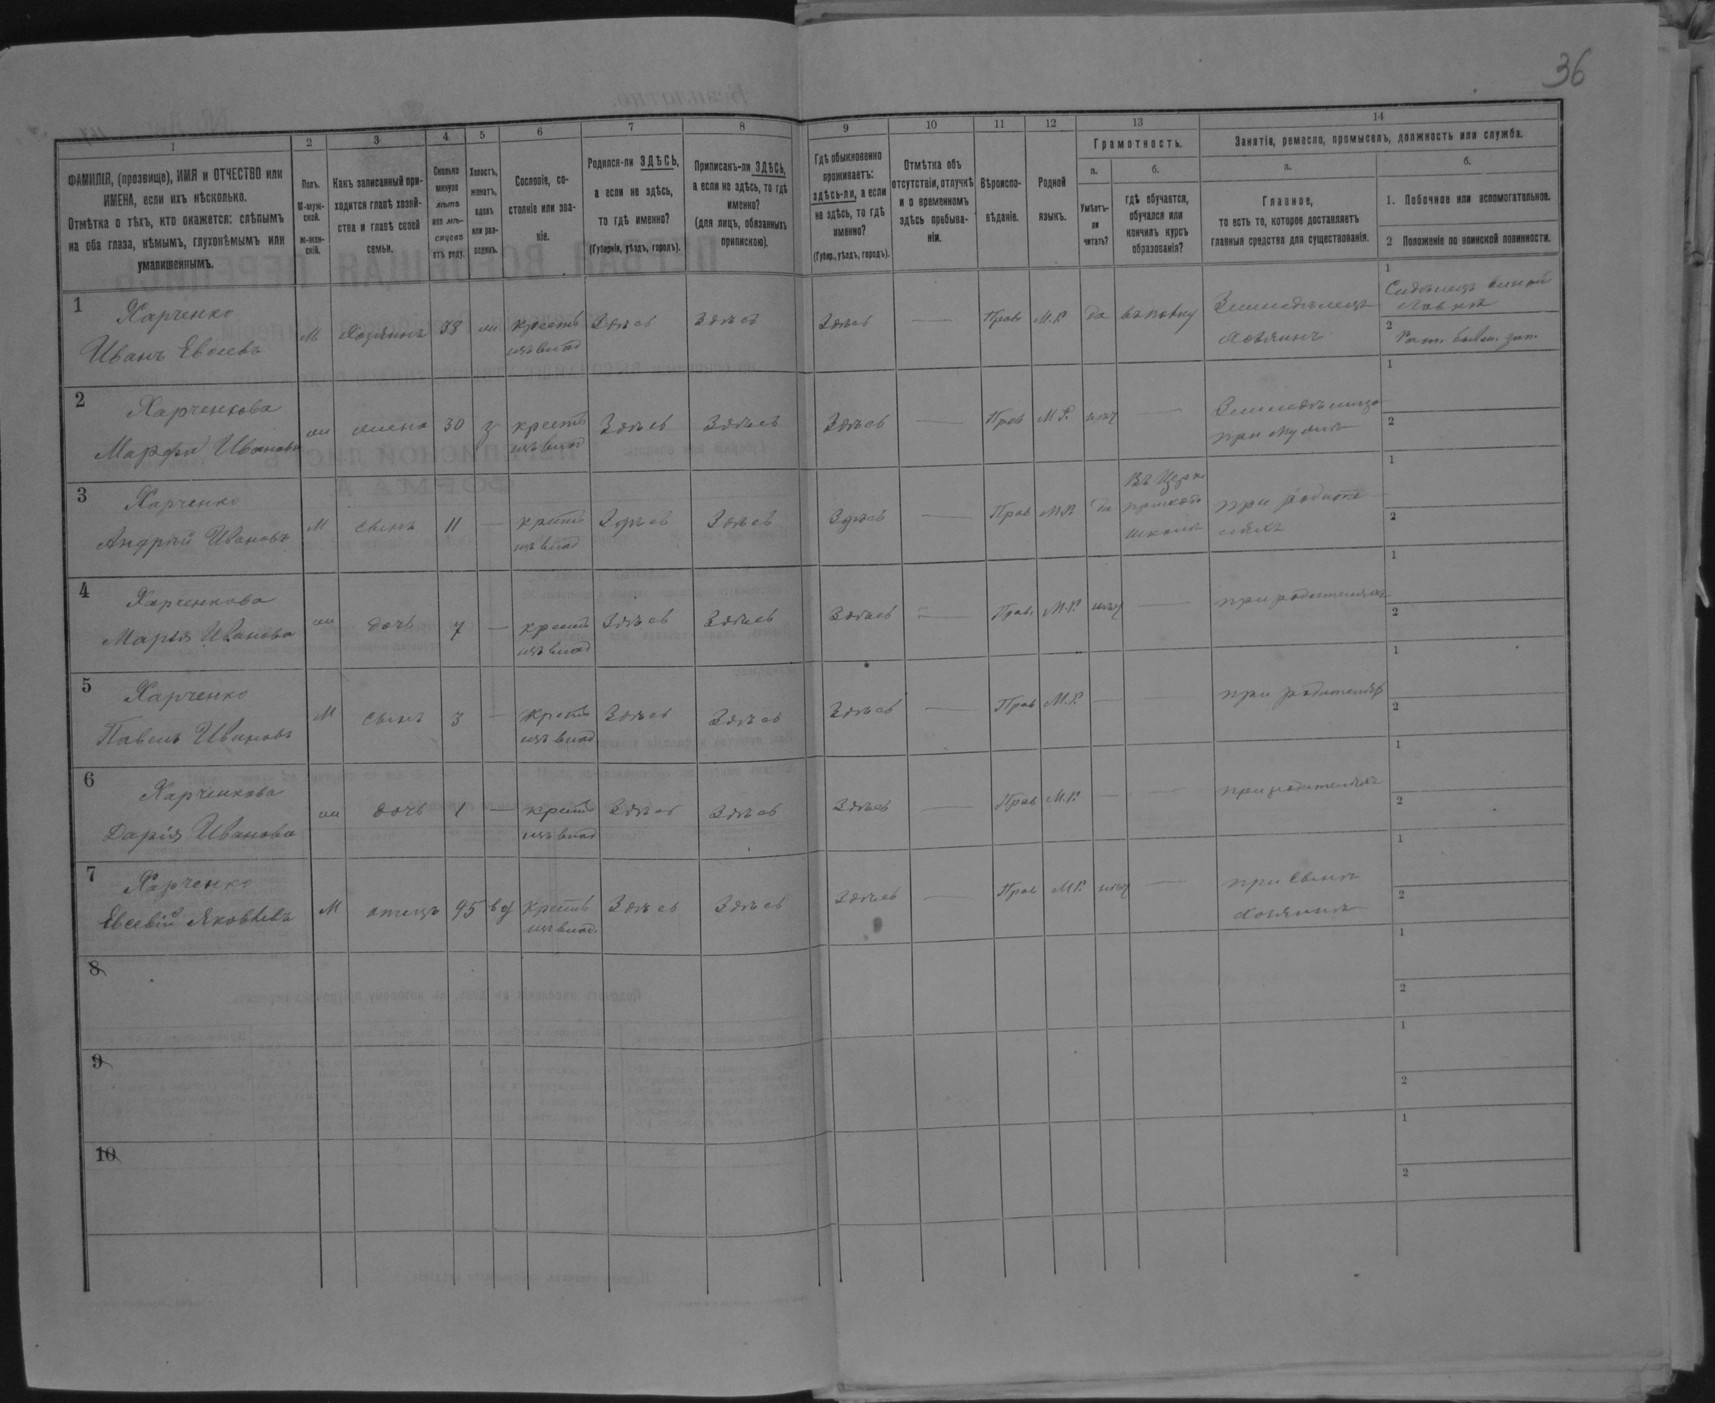 36
1
2
3
4
5
6
7
8
9
10
11
12
13
14
ФАМИЛІЯ, (прозвище), ИМЯ и ОТЧЕСТВО или
ИМЕНА, если ихъ нѣсколько.
Отмѣтка о тѣхъ, кто окажется: слѣпымъ
на оба глаза, нѣмымъ, глухонѣмымъ или
умалишеннымъ.
Полъ.
М-муж-
ской.
ж-жен-
скій.
Какъ записанный при-
ходится главѣ хозяй-
ства и главѣ своей
семьи.
Сколько
минуло
лѣтъ
или мѣ-
сяцевъ
отъ роду.
Холостъ,
женатъ,
вдовъ
или раз-
веденъ.
Сословіе, со-
стояніе или зва-
ніе.
Родился-ли ЗДѢСЬ,
а если не здѣсь,
то гдѣ именно?
(Губернія, уѣздъ, городъ).
Приписанъ-ли ЗДѢСЬ,
а если не здѣсь, то гдѣ
именно?
(для лицъ, обязанныхъ
припискою).
Гдѣ обыкновенно
проживаетъ:
здѣсь-ли, а если
не здѣсь, то гдѣ
именно?
(Губер., уѣздъ, городъ).
Отмѣтка объ
отсутствіи, отлучкѣ
и о временномъ
здѣсь пребыва-
ніи.
Вѣроиспо-
вѣданіе.
Родной
языкъ.
Грамотность.
а.
Умѣетъ-
ли
читать?
б.
гдѣ обучается,
обучался или
кончилъ курсъ
образованія?
Занятіе, ремесло, промыселъ, должность или служба.
а.
Главное,
то есть то, которое доставляетъ
главныя средства для существованія.
б.
1. Побочное или вспомогательное.
2 Положеніе по воинской повинности.
1
Харченко
Иванъ Евсеевъ
М Хозяинъ 38 ж крестъ
изъ влад
Здѣсь Здѣсь Здѣсь — Прав М.Р. да
Земледѣлецъ
хозяинъ
1 Сидѣлецъ винной
лавки
2
2
Харченкова
Марфа Иванова
ж жена 30 з крестъ
изъ влад
Здѣсь Здѣсь Здѣсь — Прав М.Р. нѣт —
при мужѣ
1
2
3
Харченко
Андрей Ивановъ
М сынъ 11 — крестъ
изъ влад
Здѣсь Здѣсь Здѣсь — Прав М.Р. да
Въ Церк.
приход.
школѣ
при родите
ляхъ
1
2
4
Харченкова
Марья Иванова
ж дочь 7 — крестъ
изъ влад
Здѣсь Здѣсь Здѣсь — Прав. М.Р. нѣт —
при родителяхъ
1
2
5
Харченко
Павелъ Ивановъ
М сынъ 3 — крестъ
изъ влад
Здѣсь Здѣсь Здѣсь — Прав М.Р. — —
при родителяхъ
1
2
6
Харченкова
Дарія Иванова
ж дочь 1 — крестъ
изъ влад
Здѣсь Здѣсь Здѣсь — Прав М.Р. — —
при родителяхъ
1
2
7
Харченко
Евсевій Яковлевъ
М отецъ 95 вд крестъ
изъ влад.
Здѣсь Здѣсь Здѣсь — Прав М.Р. нѣт —
при сынѣ
хозяинѣ
1
2
8
1
2
9
1
2
10
1
2